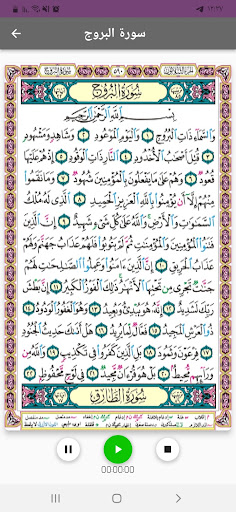 ١٢:٢٧
سورة البروج
٥٩٠
سُورَةُ البُرُوجِ
بِسْمِ اللَّهِ الرَّحْمَٰنِ الرَّحِيمِ
وَالسَّمَاءِ ذَاتِ الْبُرُوجِ ١ وَالْيَوْمِ الْمَوْعُودِ ٢ وَشَاهِدٍ وَمَشْهُودٍ
٣ قُتِلَ أَصْحَٰبُ الْأُخْدُودِ ٤ النَّارِ ذَاتِ الْوَقُودِ ٥ إِذْ هُمْ عَلَيْهَا
قُعُودٌ ٦ وَهُمْ عَلَىٰ مَا يَفْعَلُونَ بِالْمُؤْمِنِينَ شُهُودٌ ٧ وَمَا نَقَمُوا
مِنْهُمْ إِلَّا أَن يُؤْمِنُوا بِاللَّهِ الْعَزِيزِ الْحَمِيدِ ٨ الَّذِي لَهُ مُلْكُ
السَّمَٰوَٰتِ وَالْأَرْضِ وَاللَّهُ عَلَىٰ كُلِّ شَيْءٍ شَهِيدٌ ٩ إِنَّ الَّذِينَ
فَتَنُوا الْمُؤْمِنِينَ وَالْمُؤْمِنَٰتِ ثُمَّ لَمْ يَتُوبُوا فَلَهُمْ عَذَابُ جَهَنَّمَ وَلَهُمْ
عَذَابُ الْحَرِيقِ ١٠ إِنَّ الَّذِينَ ءَامَنُوا وَعَمِلُوا الصَّٰلِحَٰتِ لَهُمْ
جَنَّٰتٌ تَجْرِي مِن تَحْتِهَا الْأَنْهَٰرُ ذَٰلِكَ الْفَوْزُ الْكَبِيرُ ١١ إِنَّ بَطْشَ
رَبِّكَ لَشَدِيدٌ ١٢ إِنَّهُ هُوَ يُبْدِئُ وَيُعِيدُ ١٣ وَهُوَ الْغَفُورُ الْوَدُودُ ١٤
ذُو الْعَرْشِ الْمَجِيدُ ١٥ فَعَّالٌ لِّمَا يُرِيدُ ١٦ هَلْ أَتَىٰكَ حَدِيثُ الْجُنُودِ
١٧ فِرْعَوْنَ وَثَمُودَ ١٨ بَلِ الَّذِينَ كَفَرُوا فِي تَكْذِيبٍ ١٩ وَاللَّهُ مِن
وَرَائِهِم مُّحِيطٌ ٢٠ بَلْ هُوَ قُرْءَانٌ مَّجِيدٌ ٢١ فِي لَوْحٍ مَّحْفُوظٍ ٢٢
سُورَةُ الطَّارِقِ
00:00:00